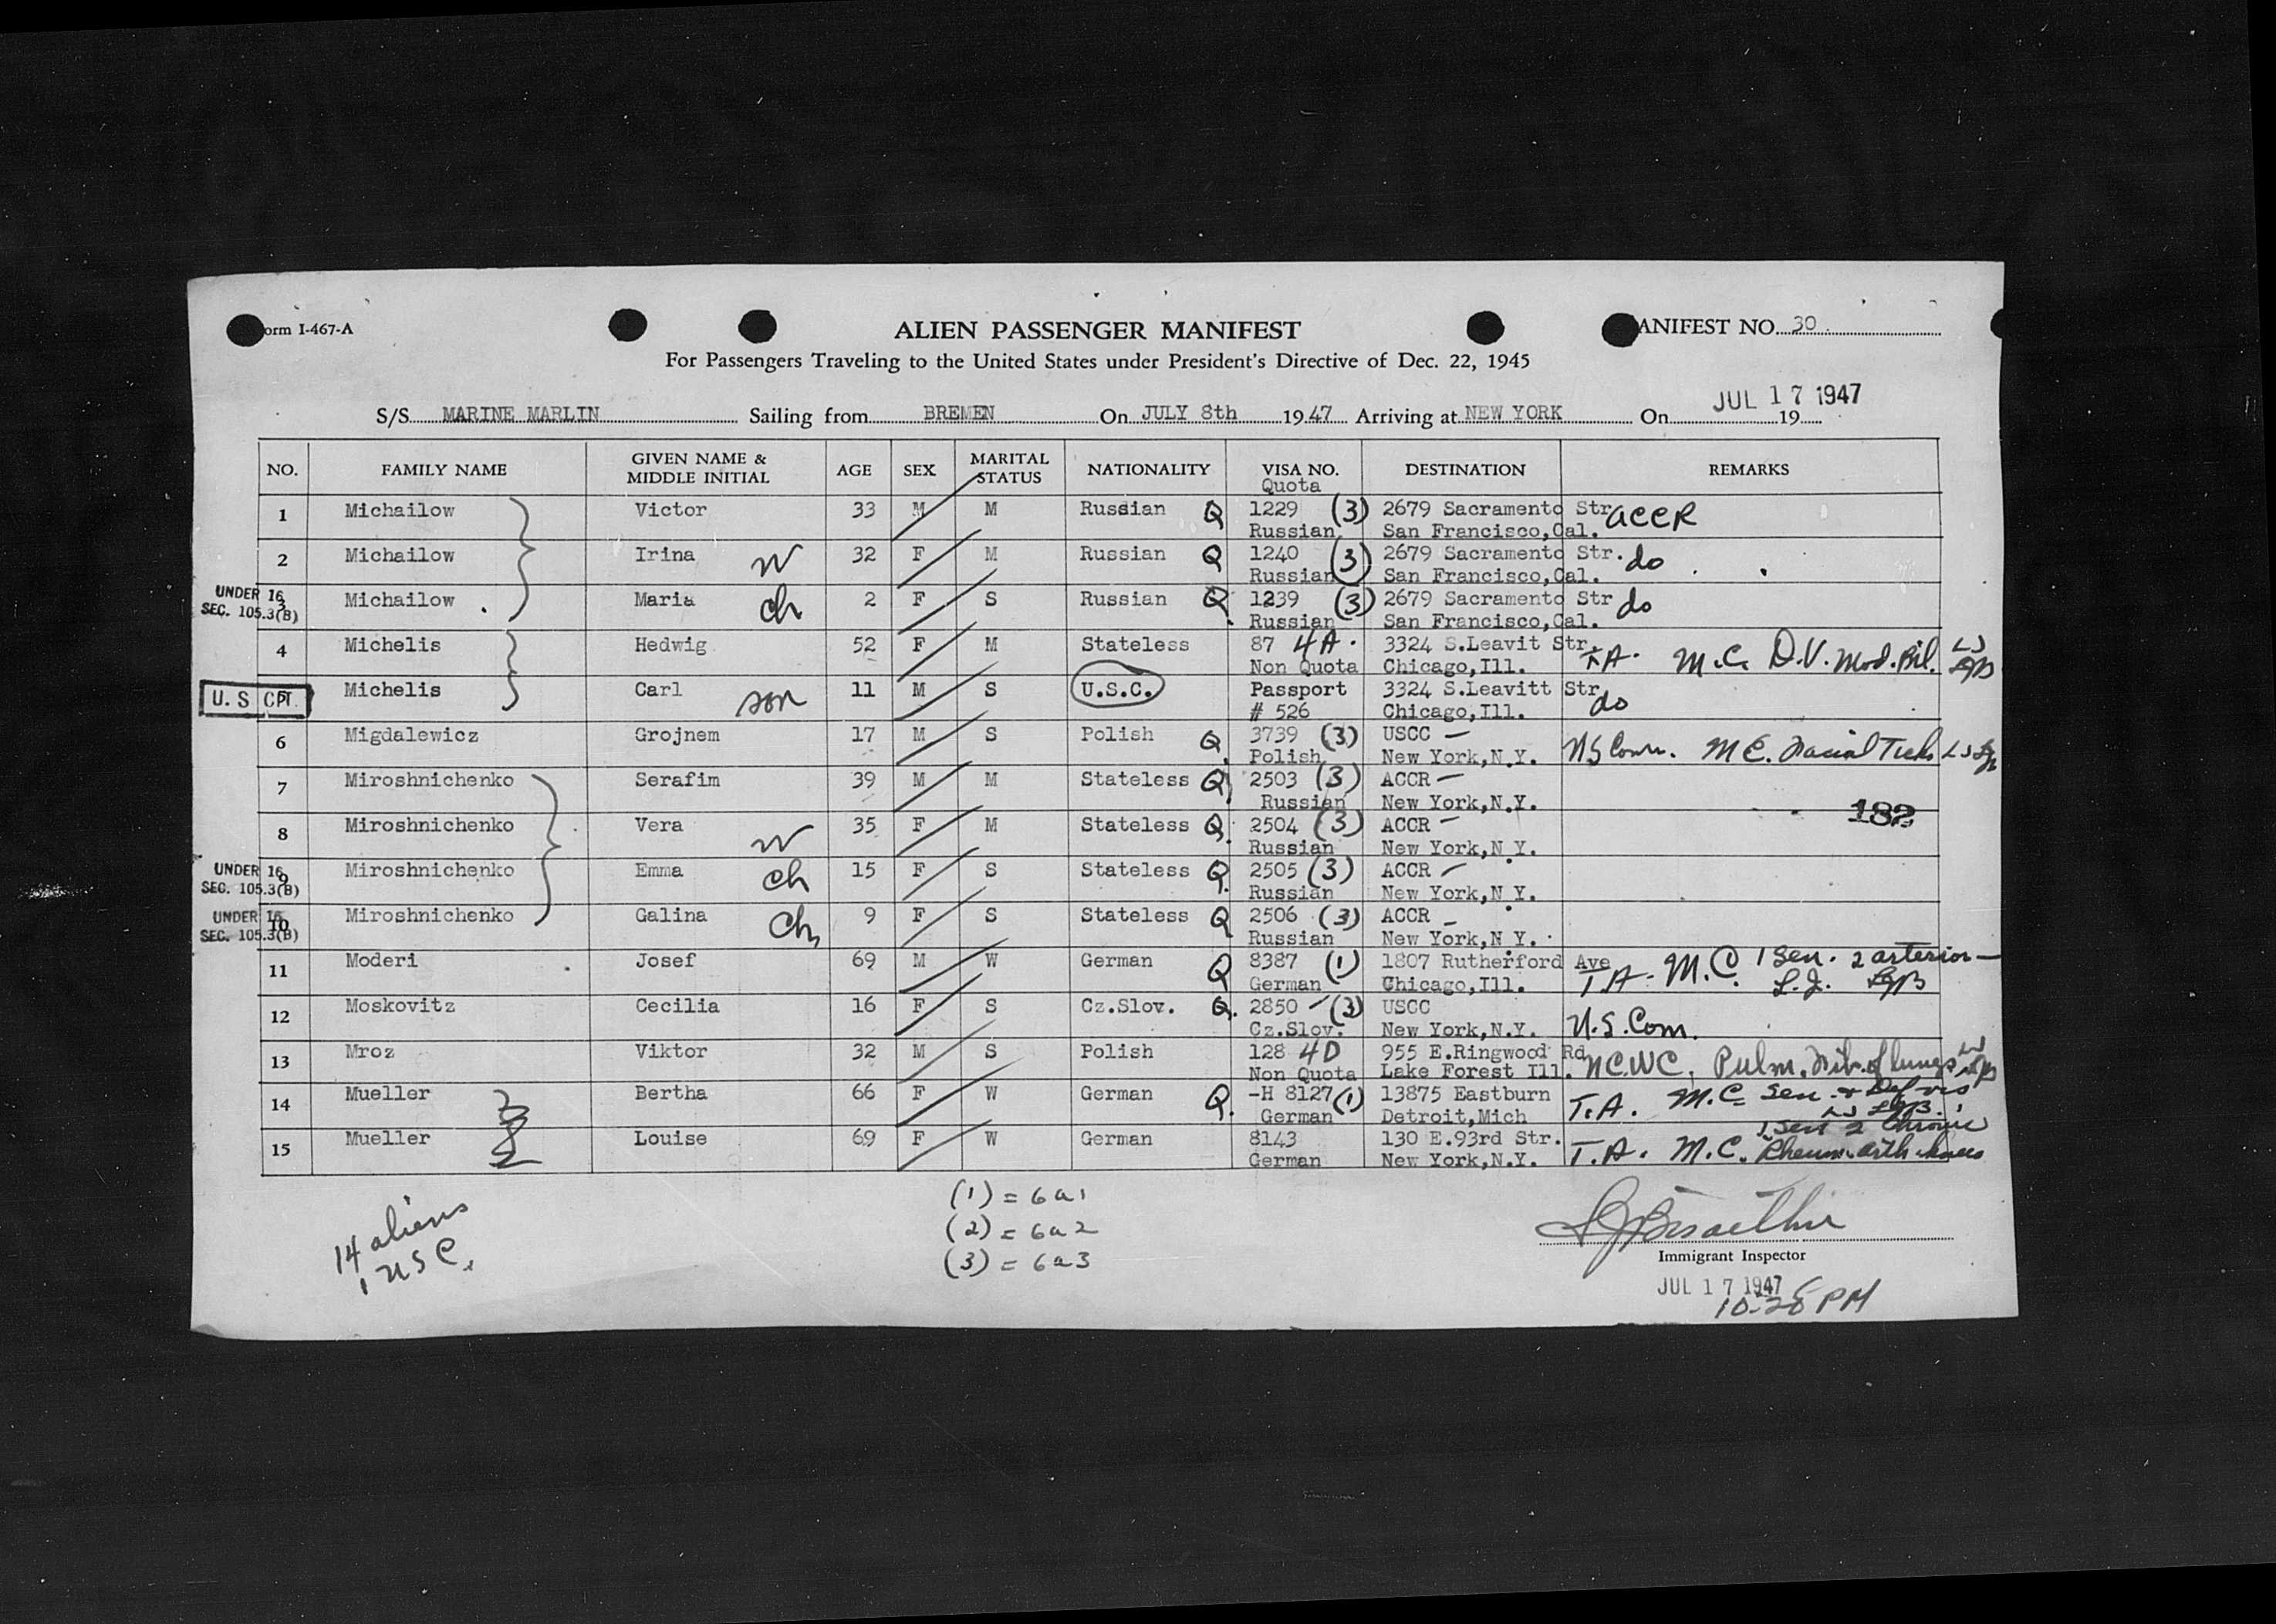 orm I-467-A
ALIEN PASSENGER MANIFEST
ANIFEST NO. 30
For Passengers Traveling to the United States under President's Directive of Dec. 22, 1945
JUL 17 1947
S/S MARINE MARLIN Sailing from BREMEN On JULY 8th 1947 Arriving at NEW YORK On 19
NO. FAMILY NAME GIVEN NAME & MIDDLE INITIAL AGE SEX MARITAL STATUS NATIONALITY VISA NO. DESTINATION REMARKS
Quota
1 Michailow Victor 33 M M Russian Q 1229 (3) 2679 Sacramento Str ACCR
Russian San Francisco,Cal.
2 Michailow Irina W 32 F M Russian Q 1240 (3) 2679 Sacramento Str. do
Russian San Francisco,Cal.
UNDER 16
SEC. 105.3(B)
3 Michailow Maria ch 2 F S Russian Q 1239 (3) 2679 Sacramento Str do
Russian San Francisco,Cal.
4 Michelis Hedwig 52 F M Stateless 87 4A. 3324 S.Leavit Str. T.A. M.C. D.V. Mod. Bil. LJ
Non Quota Chicago,Ill.
U.S CPT.
5 Michelis Carl son 11 M S U.S.C. Passport 3324 S.Leavitt Str do
# 526 Chicago,Ill.
6 Migdalewicz Grojnem 17 M S Polish Q 3739 (3) USCC
Polish New York,N.Y. US Com. M.C. Facial Ticks LJ
7 Miroshnichenko Serafim 39 M M Stateless Q 2503 (3) ACCR
Russian New York,N.Y.
182
8 Miroshnichenko Vera W 35 F M Stateless Q 2504 (3) ACCR
Russian New York,N.Y.
UNDER 16
SEC. 105.3(B)
9 Miroshnichenko Emma ch 15 F S Stateless Q 2505 (3) ACCR
Russian New York,N.Y.
UNDER 16
SEC. 105.3(B)
10 Miroshnichenko Galina Ch 9 F S Stateless Q 2506 (3) ACCR
Russian New York,N.Y.
11 Moderi Josef 69 M W German Q 8387 (1) 1807 Rutherford Ave T.A. M.C. 1 Sen. 2 arterio-
German Chicago,Ill. L.J.
12 Moskovitz Cecilia 16 F S Cz.Slov. Q. 2850 (3) USCC
Cz.Slov. New York,N.Y. U.S. Com.
13 Mroz Viktor 32 M S Polish 128 4D 955 E.Ringwood Rd NCWC. Pulm. Fib. of lungs LJ
Non Quota Lake Forest Ill.
14 Mueller Bertha 66 F W German Q. -H 8127 (1) 13875 Eastburn T.A. M.C. Sen. & Def vis
German Detroit,Mich LJ
15 Mueller Louise 69 F W German 8143 130 E.93rd Str. T.A. M.C. 1 Sen 2 Chronic
German New York,N.Y. Rheum. arth knees
(1) = 6a1
(2) = 6a2
(3) = 6a3
14 aliens
1 USC.
Immigrant Inspector
JUL 17 1947
PM